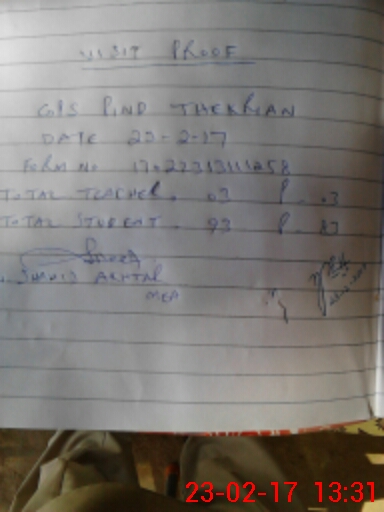 VISIT PROOF
GPS PIND THEKRIAN
DATE 23-2-17
FORM NO
TOTAL TEACHER. 03 P. 03
TOTAL STUDENT. 93 P. 83
JAVID AKHTAR
MEA
23-02-17 13:31